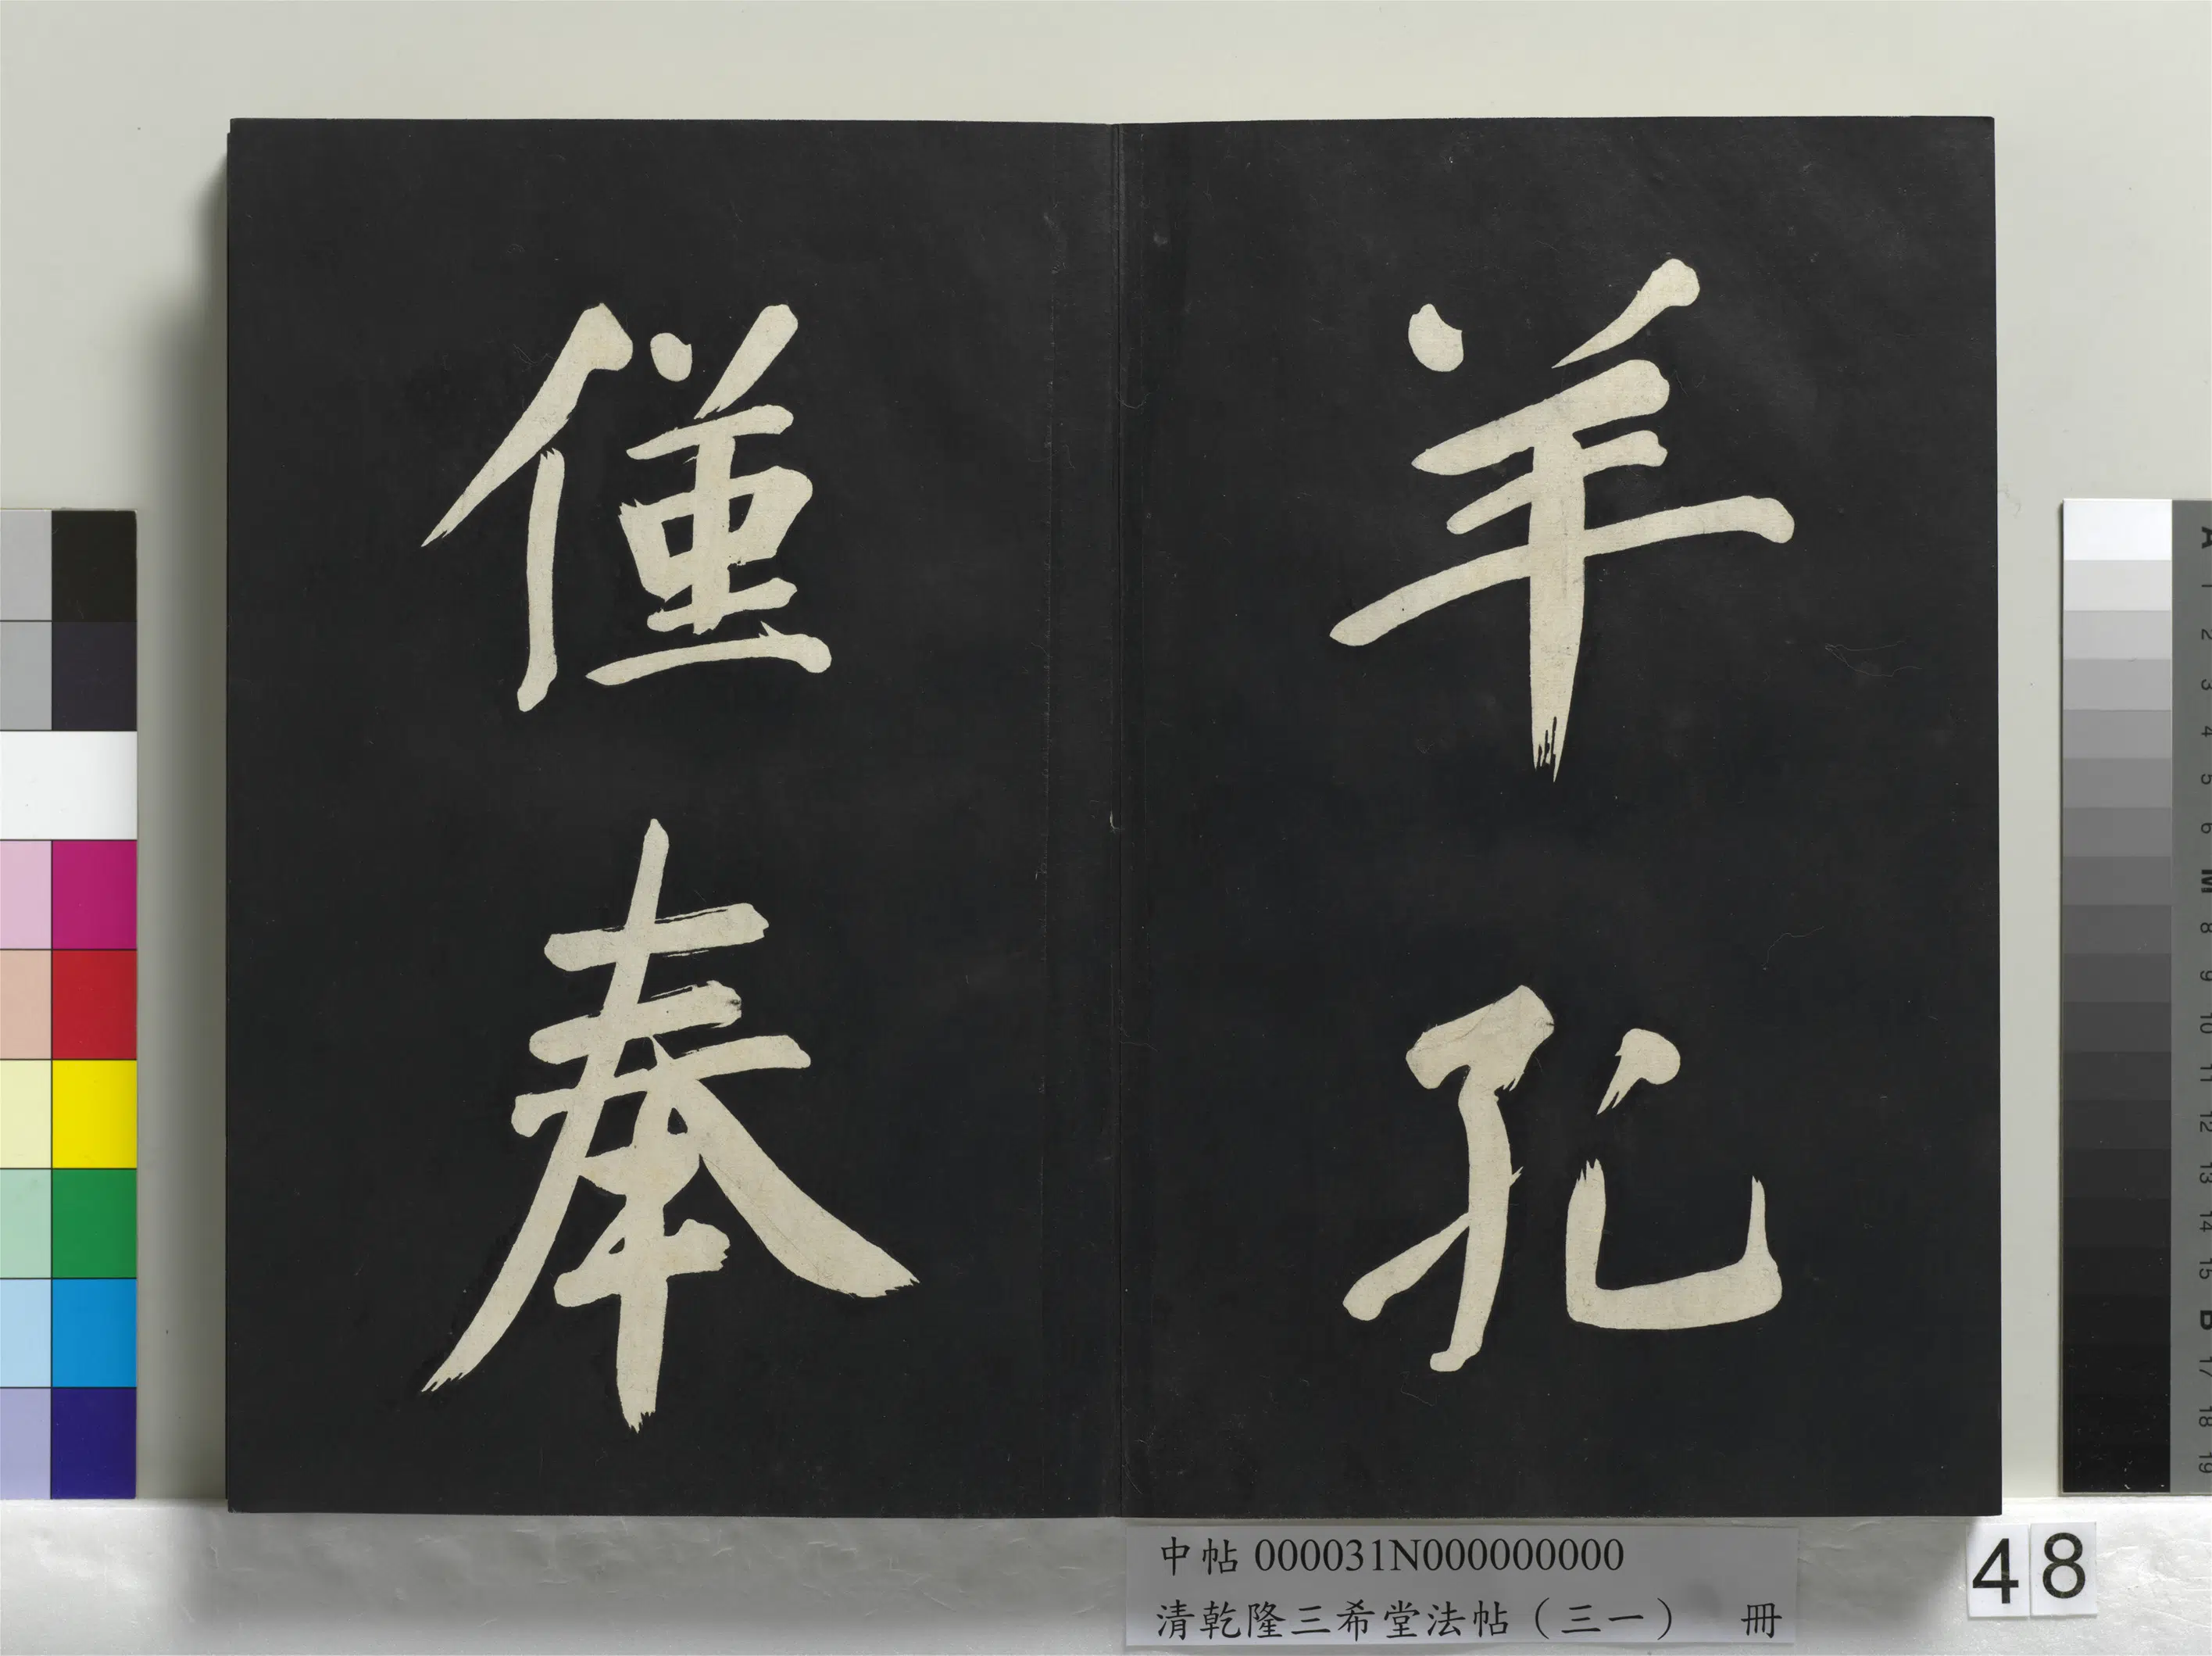 羊孔
僅奉
中帖000031N000000000
清乾隆三希堂法帖（三一） 冊
48
A 1 2 3 4 5 6 M 8 9 10 11 12 13 14 15 B 17 18 19